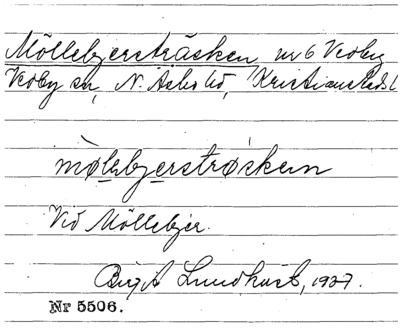 Möllebjersträsken nr 6 Vedby
Vedby sn, N. Åsbo hd, Kristianstads l
mølebjerstrøsken
Vid Möllebjer.
Birgit Lundkvist, 1927.
Nr 5506.